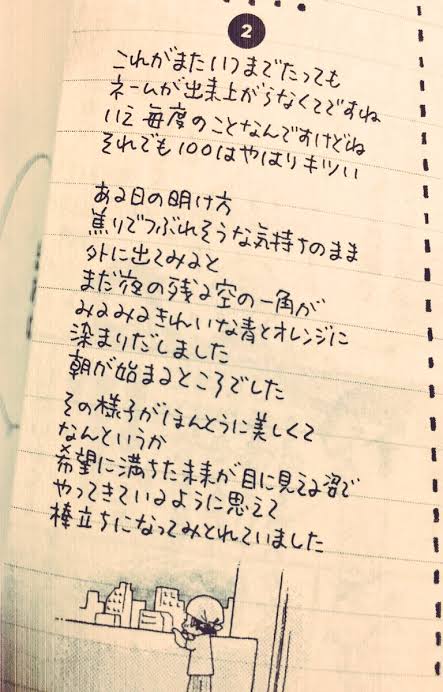 2
これがまたいつまでたっても
ネームが出来上がらなくてですね
いえ毎度のことなんですけどね
それでも100はやはりキツい
ある日の明け方
焦りでつぶれそうな気持ちのまま
外に出てみると
まだ夜の残る空の一角が
みるみるきれいな青とオレンジに
染まりだしました
朝が始まるところでした
その様子がほんとうに美しくて
なんというか
希望に満ちた未来が目に見える姿で
やってきているように思えて
棒立ちになってみとれていました